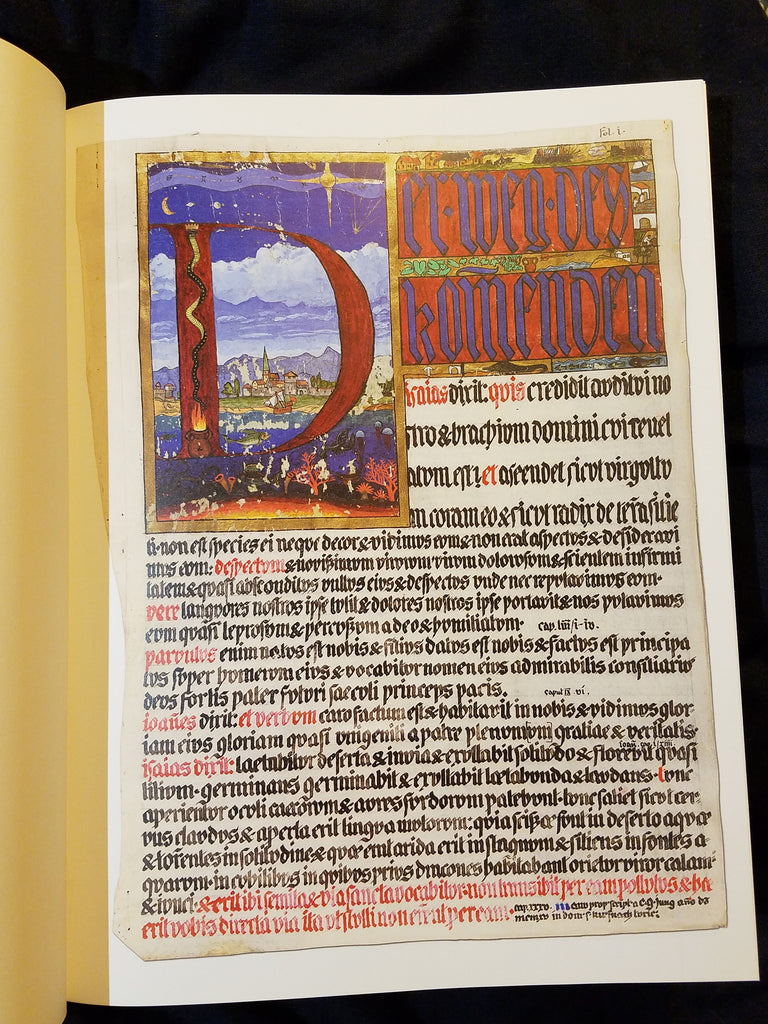 fol. i.
Der·weg·des
kom̄enden
isaias dixit: quis credidit auditui no
stro & brachium domini cui revel
atum est? et ascendet sicut virgultu
m coram eo & sicut radix de terra sitie
ti · non est species ei neque decor & vidimus eum & non erat aspectus & desideravi
mus eum: despectum & novissimum virorum virum dolorum & scientem infirmi
tatem & quasi absconditus vultus eius & despectus unde nec reputavimus eum ·
vere languores nostros ipse tulit & dolores nostros ipse portavit & nos putavimus
eum quasi leprosum & percussum a deo & humiliatum · cap. liii/i-iv.
parvulus enim natus est nobis & filius datus est nobis & factus est principa
tus super humerum eius & vocabitur nomen eius admirabilis consiliarius
deus fortis pater futuri saeculi princeps pacis. caput ix vi.
ioañes dixit: et verbum caro factum est & habitavit in nobis & vidimus glor
iam eius gloriam quasi unigeniti a patre plenum gratiae & veritatis ·
isaias dixit: laetabitur deserta & invia & exultabit solitudo & florebit quasi
lilium · germinans germinabit & exultabit laetabunda & laudans · tunc
aperientur oculi caecorum & aures surdorum patebunt · tunc saliet sicut cer
vus claudus & aperta erit lingua mutorum: quia scissae sunt in deserto aquae
& torrentes in solitudine & quae erat arida erit in stagnum & sitiens in fontes a
quarum · in cubilibus in quibus prius dracones habitabant orietur viror calami
& iunci · & erit ibi semita & via sancta vocabitur · non transibit per eam pollutus & haec
erit vobis directa via ita ut stulti non errent per eam · cap. xxxv.